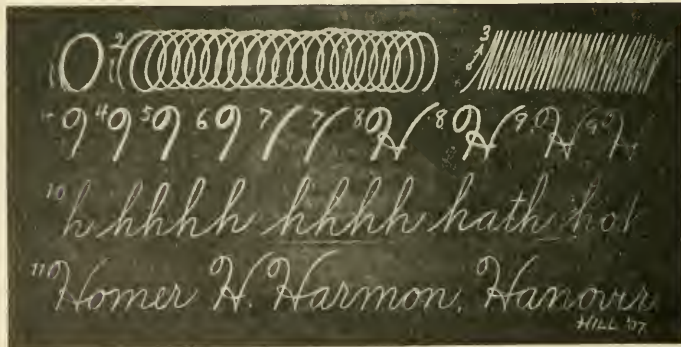 2 3
4 5 6 7 7 8 H 8 H 9 H 9 H
10 h hhhh hhhh hath hot
11 Homer H. Harmon, Hanover
HILL '07